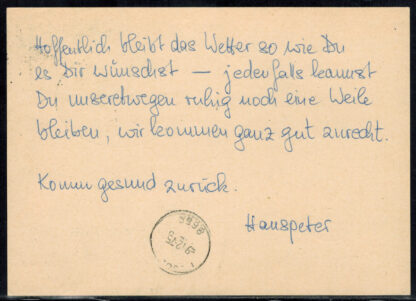 Hoffentlich bleibt das Wetter so wie Du
es Dir wünschst – jedenfalls kannst
Du unseretwegen ruhig noch eine Weile
bleiben, wir kommen ganz gut zurecht.
Komm gesund zurück.
Hanspeter